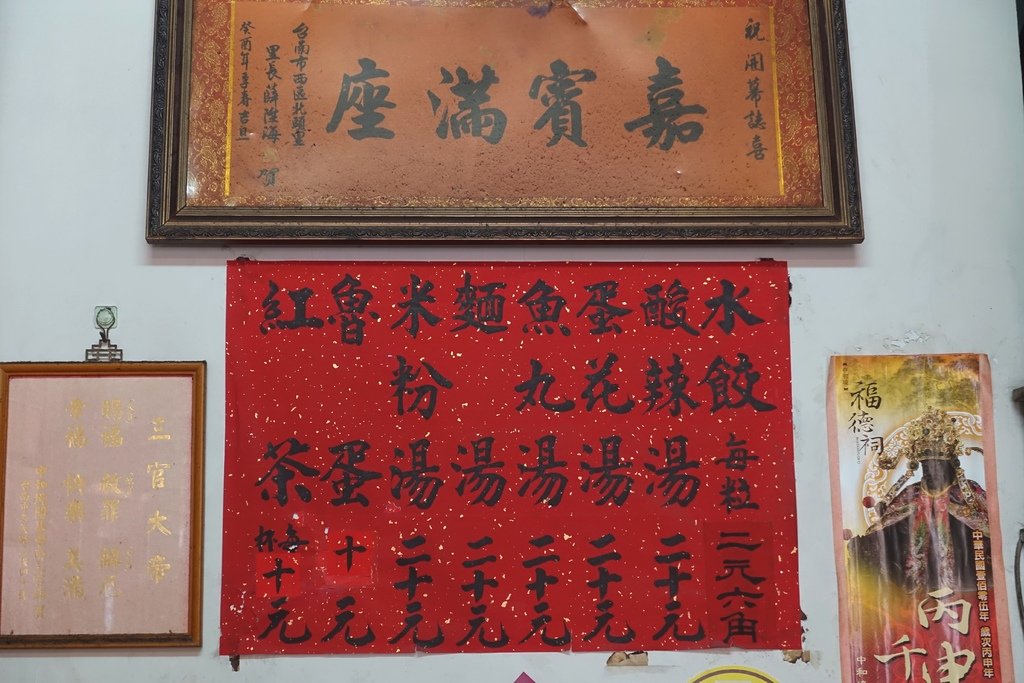 祝開幕誌喜
嘉賓滿座
台南市西區北頭里
里長薛陞海 賀
癸酉年季春吉旦
水餃每粒二元六角
酸辣湯二十元
蛋花湯二十元
魚丸湯二十元
麵湯二十元
米粉湯二十元
魯蛋十元
紅茶每杯十元
三官大帝
福德祠
中華民國壹佰零伍年 歲次丙申年
丙申
千
中和